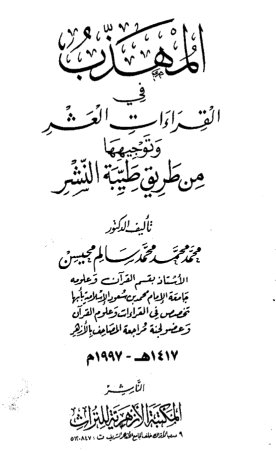 المهذب
في
القراءات العشر
وتوجيهها
من طريق طيبة النشر
تأليف الدكتور
محمد محمد محمد سالم محيسن
الأستاذ بقسم القرآن وعلومه
جامعة الإمام محمد بن سعود الإسلامية بأبها
تخصص في القراءات وعلوم القرآن
وعضو لجنة مراجعة المصاحف بالأزهر
١٤١٧هـ - ١٩٩٧م
الناشر
المكتبة الأزهرية للتراث
٩ درب الأتراك خلف الجامع الأزهر الشريف ت: ٥١٢٠٨٤٧